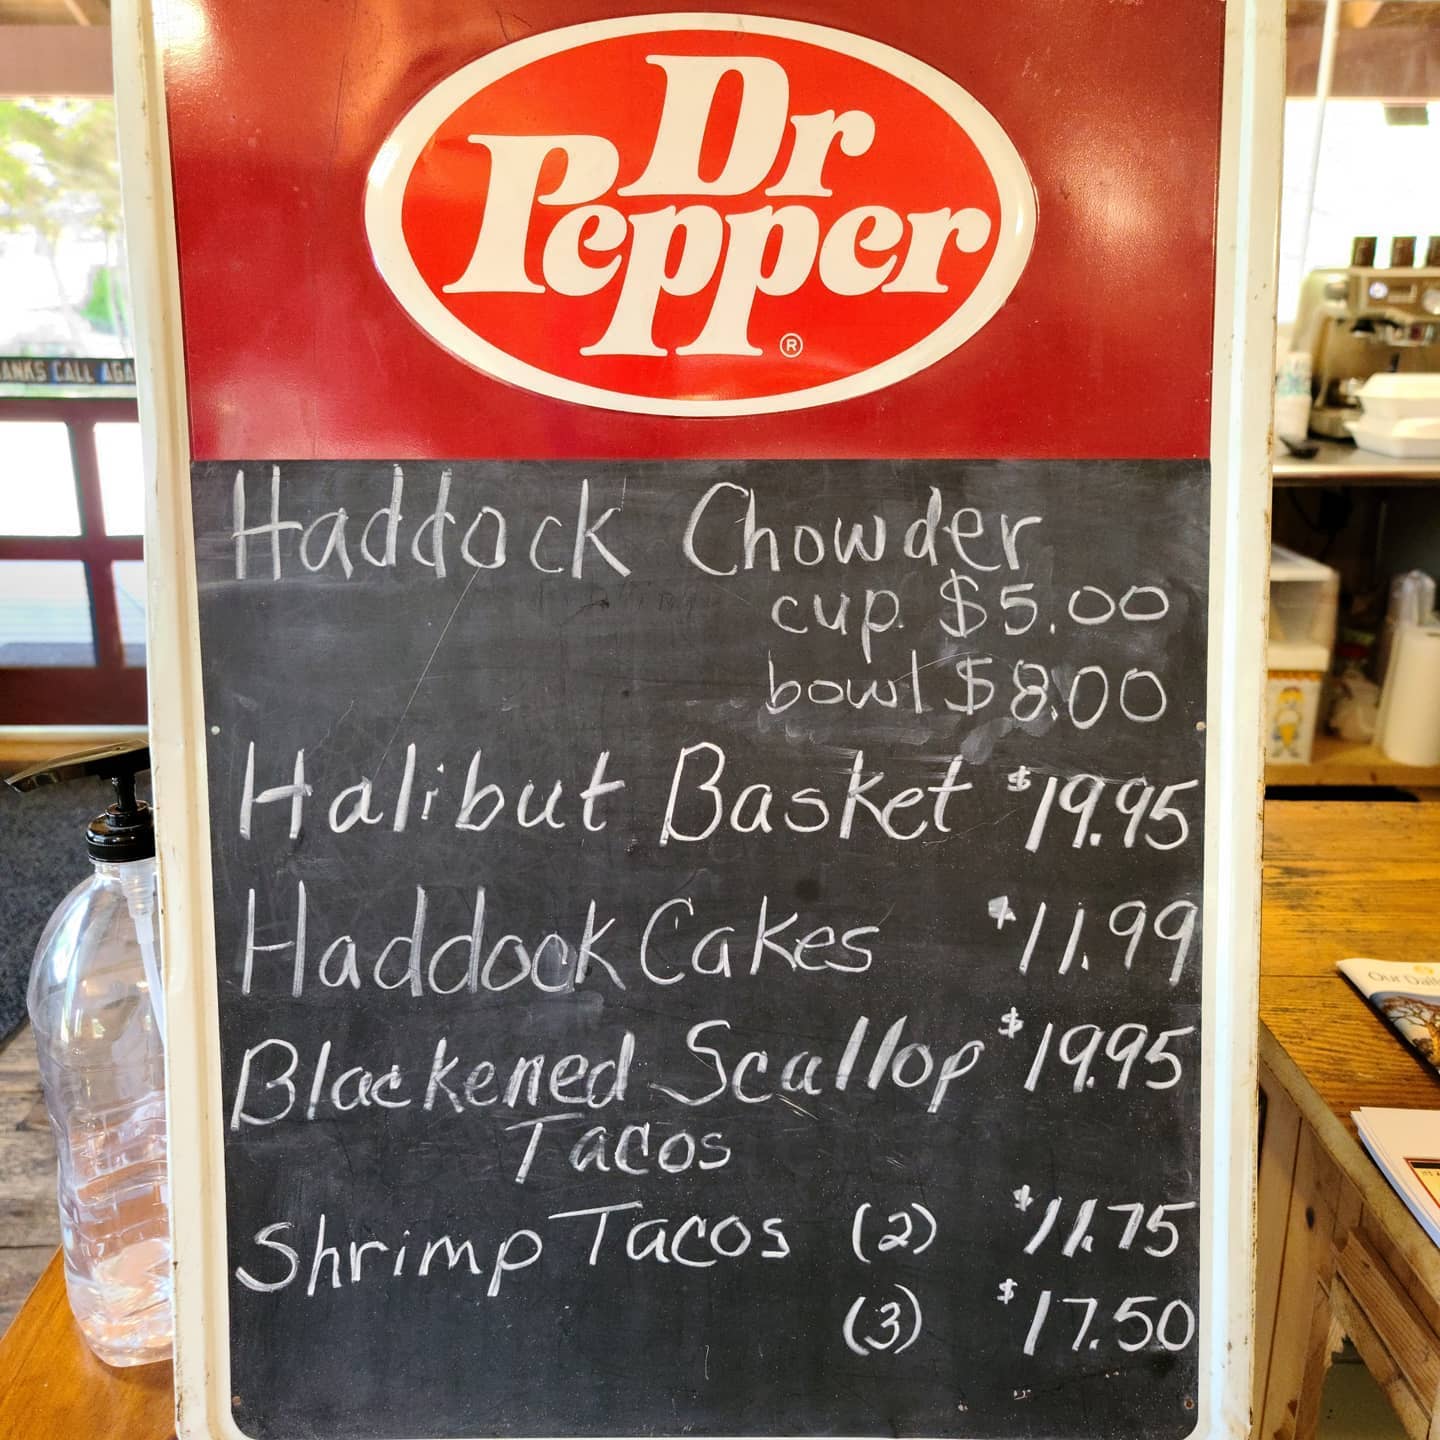 Dr
Pepper
®
ANKS CALL AGA
Haddock Chowder
cup $5.00
bowl $8.00
Halibut Basket $19.95
Haddock Cakes $11.99
Blackened Scallop $19.95
Tacos
Shrimp Tacos (2) $11.75
(3) $17.50
Our Dail